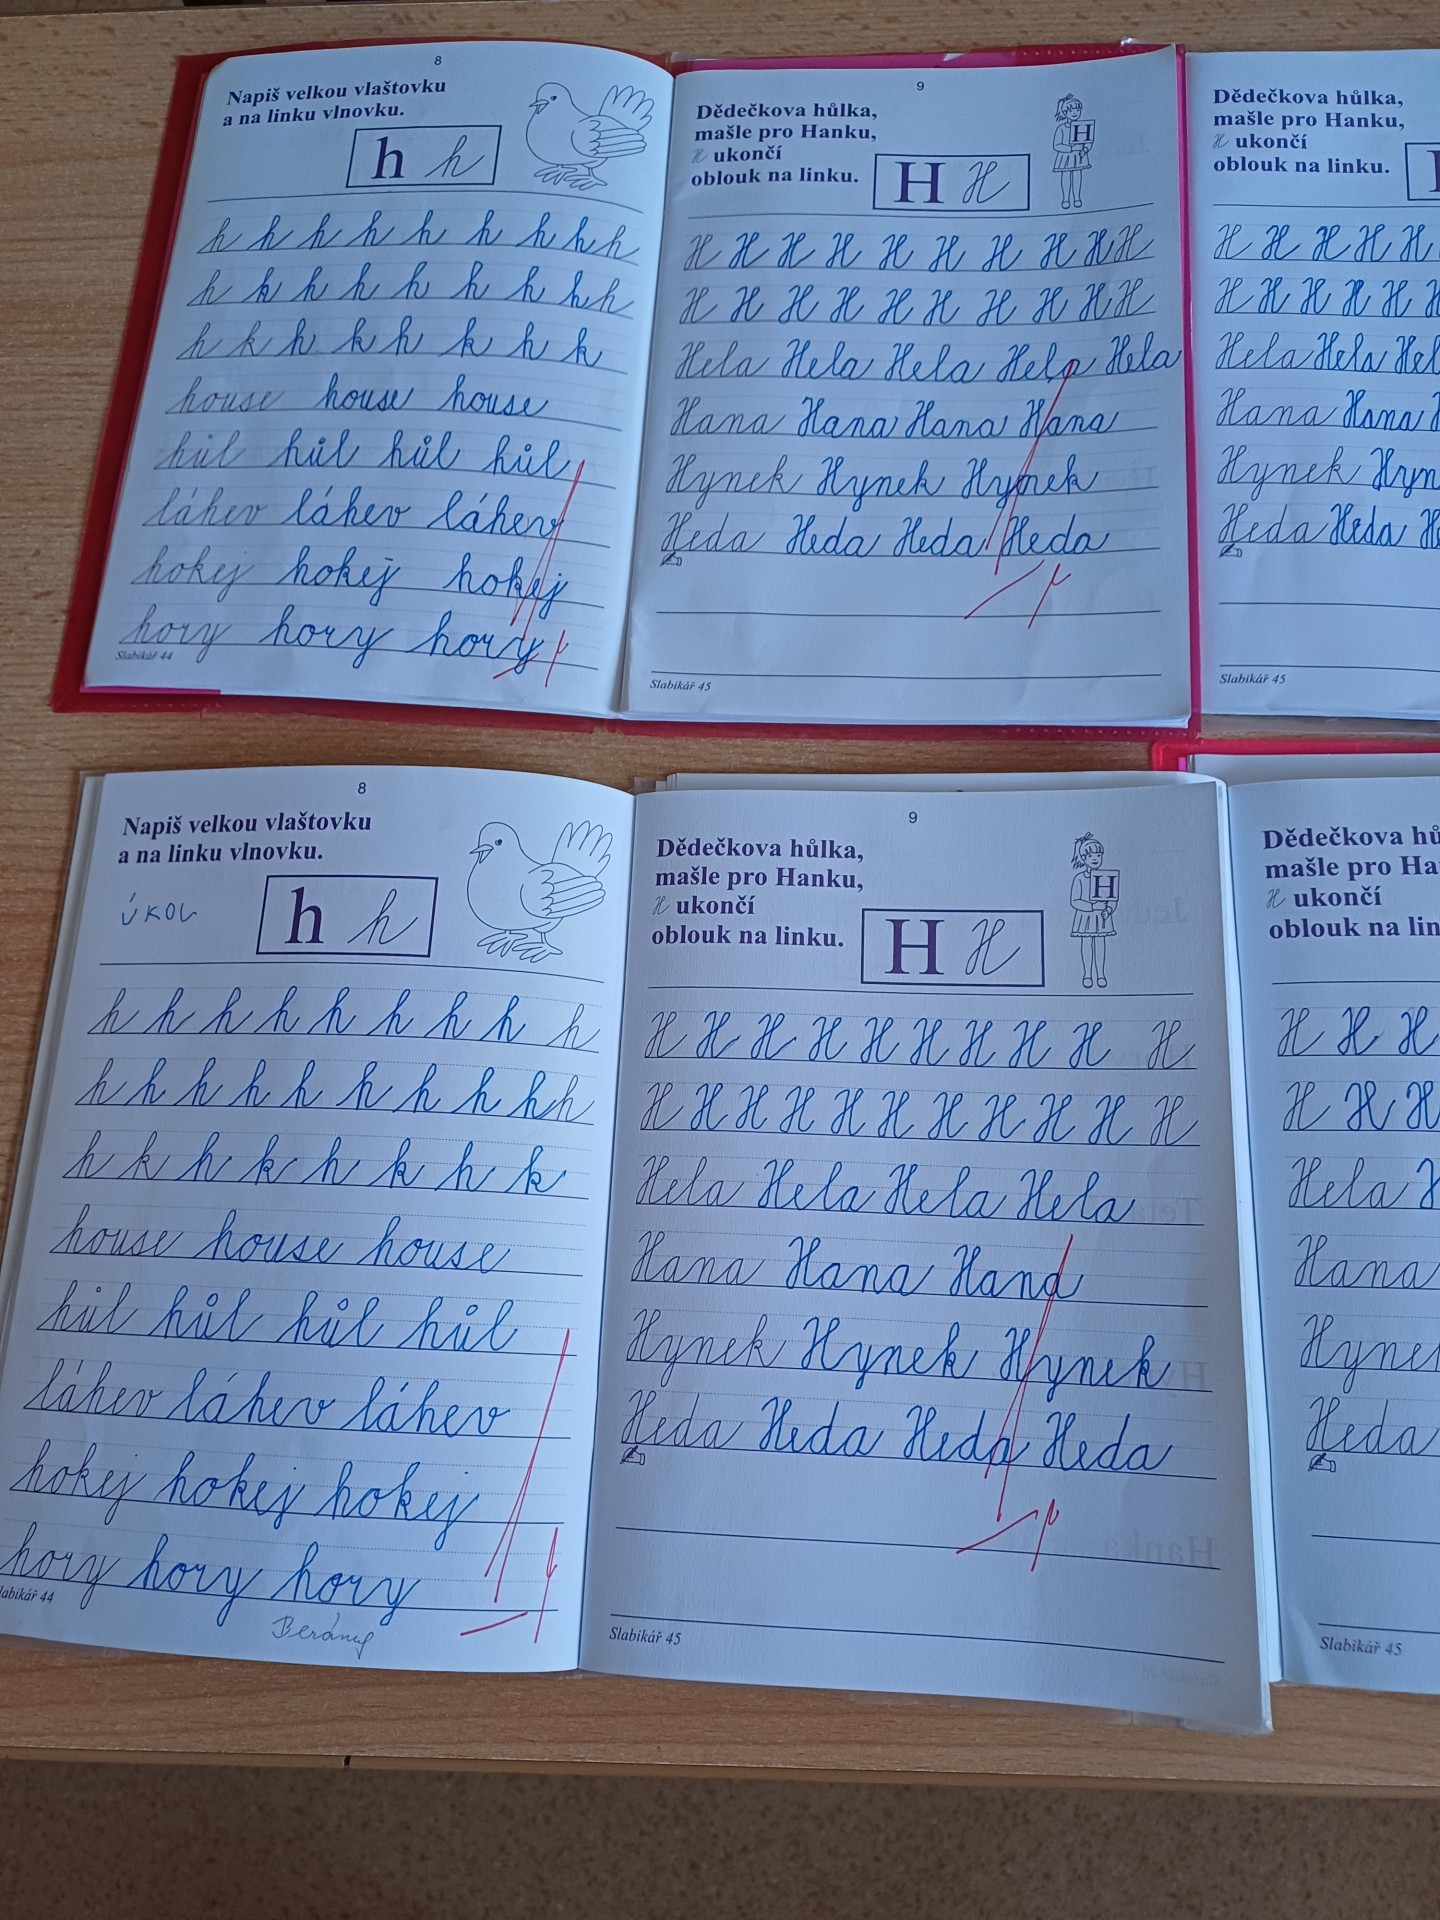 8
Napiš velkou vlaštovku
a na linku vlnovku.
h h
h h h h h h h h h
h h h h h h h h h
h k h k h k h k
house house house
hůl hůl hůl hůl
láhev láhev láhev
hokej hokej hokej
hory hory hory
Slabikář 44
9
Dědečkova hůlka,
mašle pro Hanku,
H ukončí
oblouk na linku.
H
H H
H H H H H H H H H H
H H H H H H H H H H
Hela Hela Hela Hela Hela
Hana Hana Hana Hana
Hynek Hynek Hynek
Heda Heda Heda Heda
Slabikář 45
Dědečkova hůlka,
mašle pro Hanku,
H ukončí
oblouk na linku.
H H H H H
H H H H H H
Hela Hela Hel
Hana Hana
Hynek Hyn
Heda Heda
Slabikář 45
8
Napiš velkou vlaštovku
a na linku vlnovku.
ÚKOL
h h
h h h h h h h h h
h h h h h h h h h
h k h k h k h k
house house house
hůl hůl hůl hůl
láhev láhev láhev
hokej hokej hokej
hory hory hory
labikář 44
9
Dědečkova hůlka,
mašle pro Hanku,
H ukončí
oblouk na linku.
H
H H
H H H H H H H H H H
H H H H H H H H H H
Hela Hela Hela Hela
Hana Hana Hana
Hynek Hynek Hynek
Heda Heda Heda Heda
Slabikář 45
Dědečkova hů
mašle pro Ha
H ukončí
oblouk na lin
H H H
H H H
Hela
Hana
Hyne
Heda
Slabikář 45